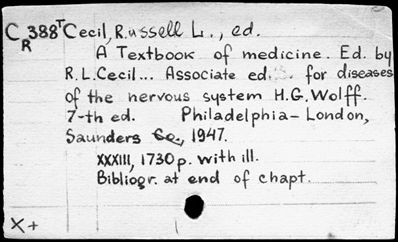 C R 388 T Cecil, Russell L., ed.
A Textbook of medicine. Ed. by
R.L.Cecil... Associate ed. for diseases
of the nervous system H.G.Wolff.
7-th ed. Philadelphia-London,
Saunders Co., 1947.
XXXIII, 1730 p. with ill.
Bibliogr. at end of chapt.
X+